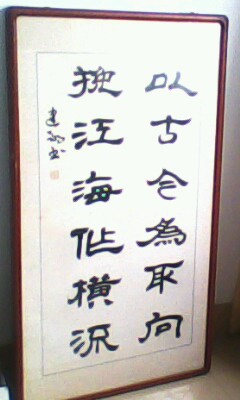 以古今為取向
挽江海作橫流
建勋书